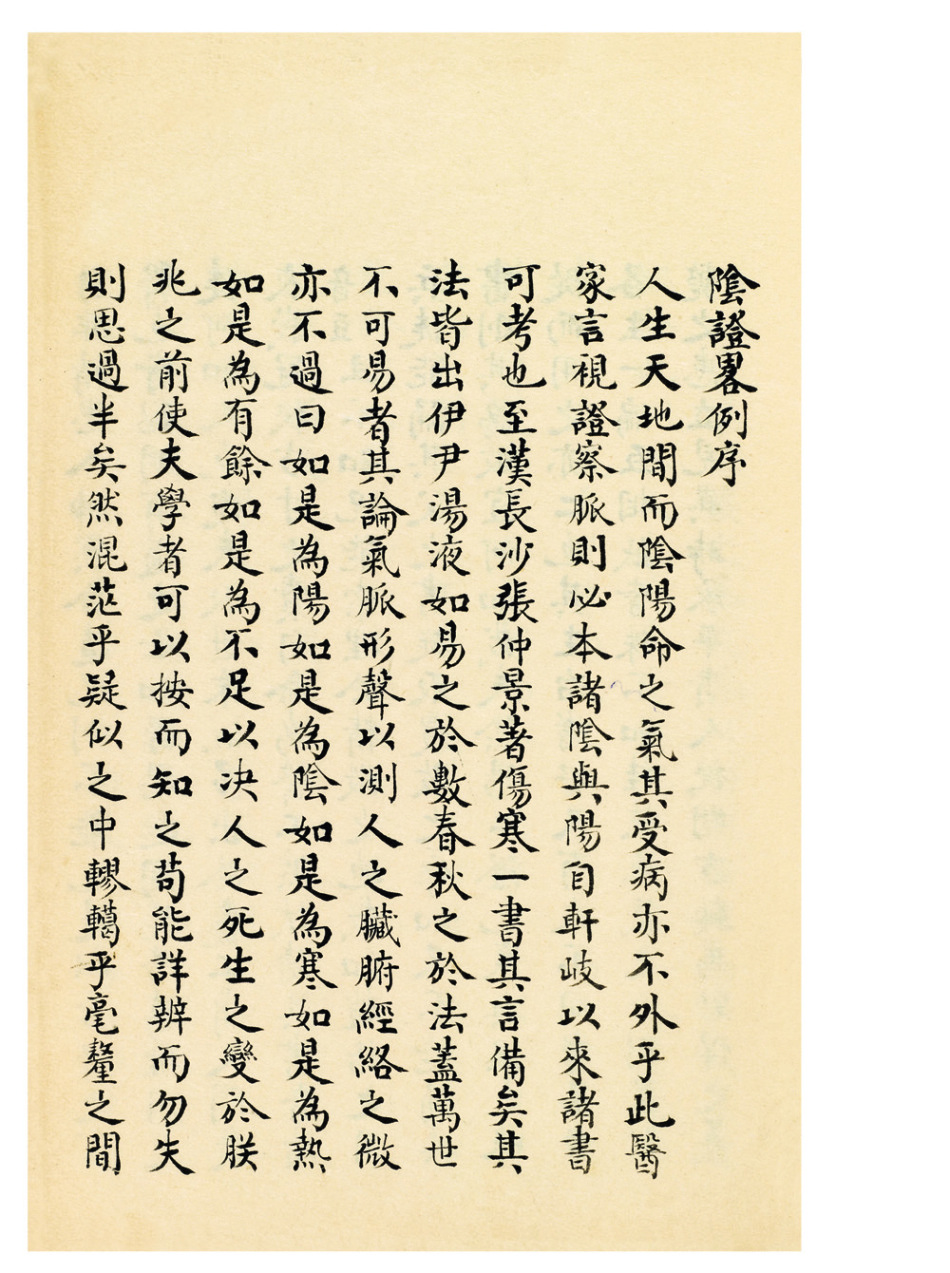 陰證畧例序
人生天地間而陰陽命之氣其受病亦不外乎此醫
家言視證察脈則必本諸陰與陽自軒岐以來諸書
可考也至漢長沙張仲景著傷寒一書其言備矣其
法皆出伊尹湯液如易之於數春秋之於法蓋萬世
不可易者其論氣脈形聲以測人之臟腑經絡之微
亦不過曰如是為陽如是為陰如是為寒如是為熱
如是為有餘如是為不足以决人之死生之變於朕
兆之前使夫學者可以按而知之苟能詳辨而勿失
則思過半矣然混茫乎疑似之中轇轕乎毫釐之間